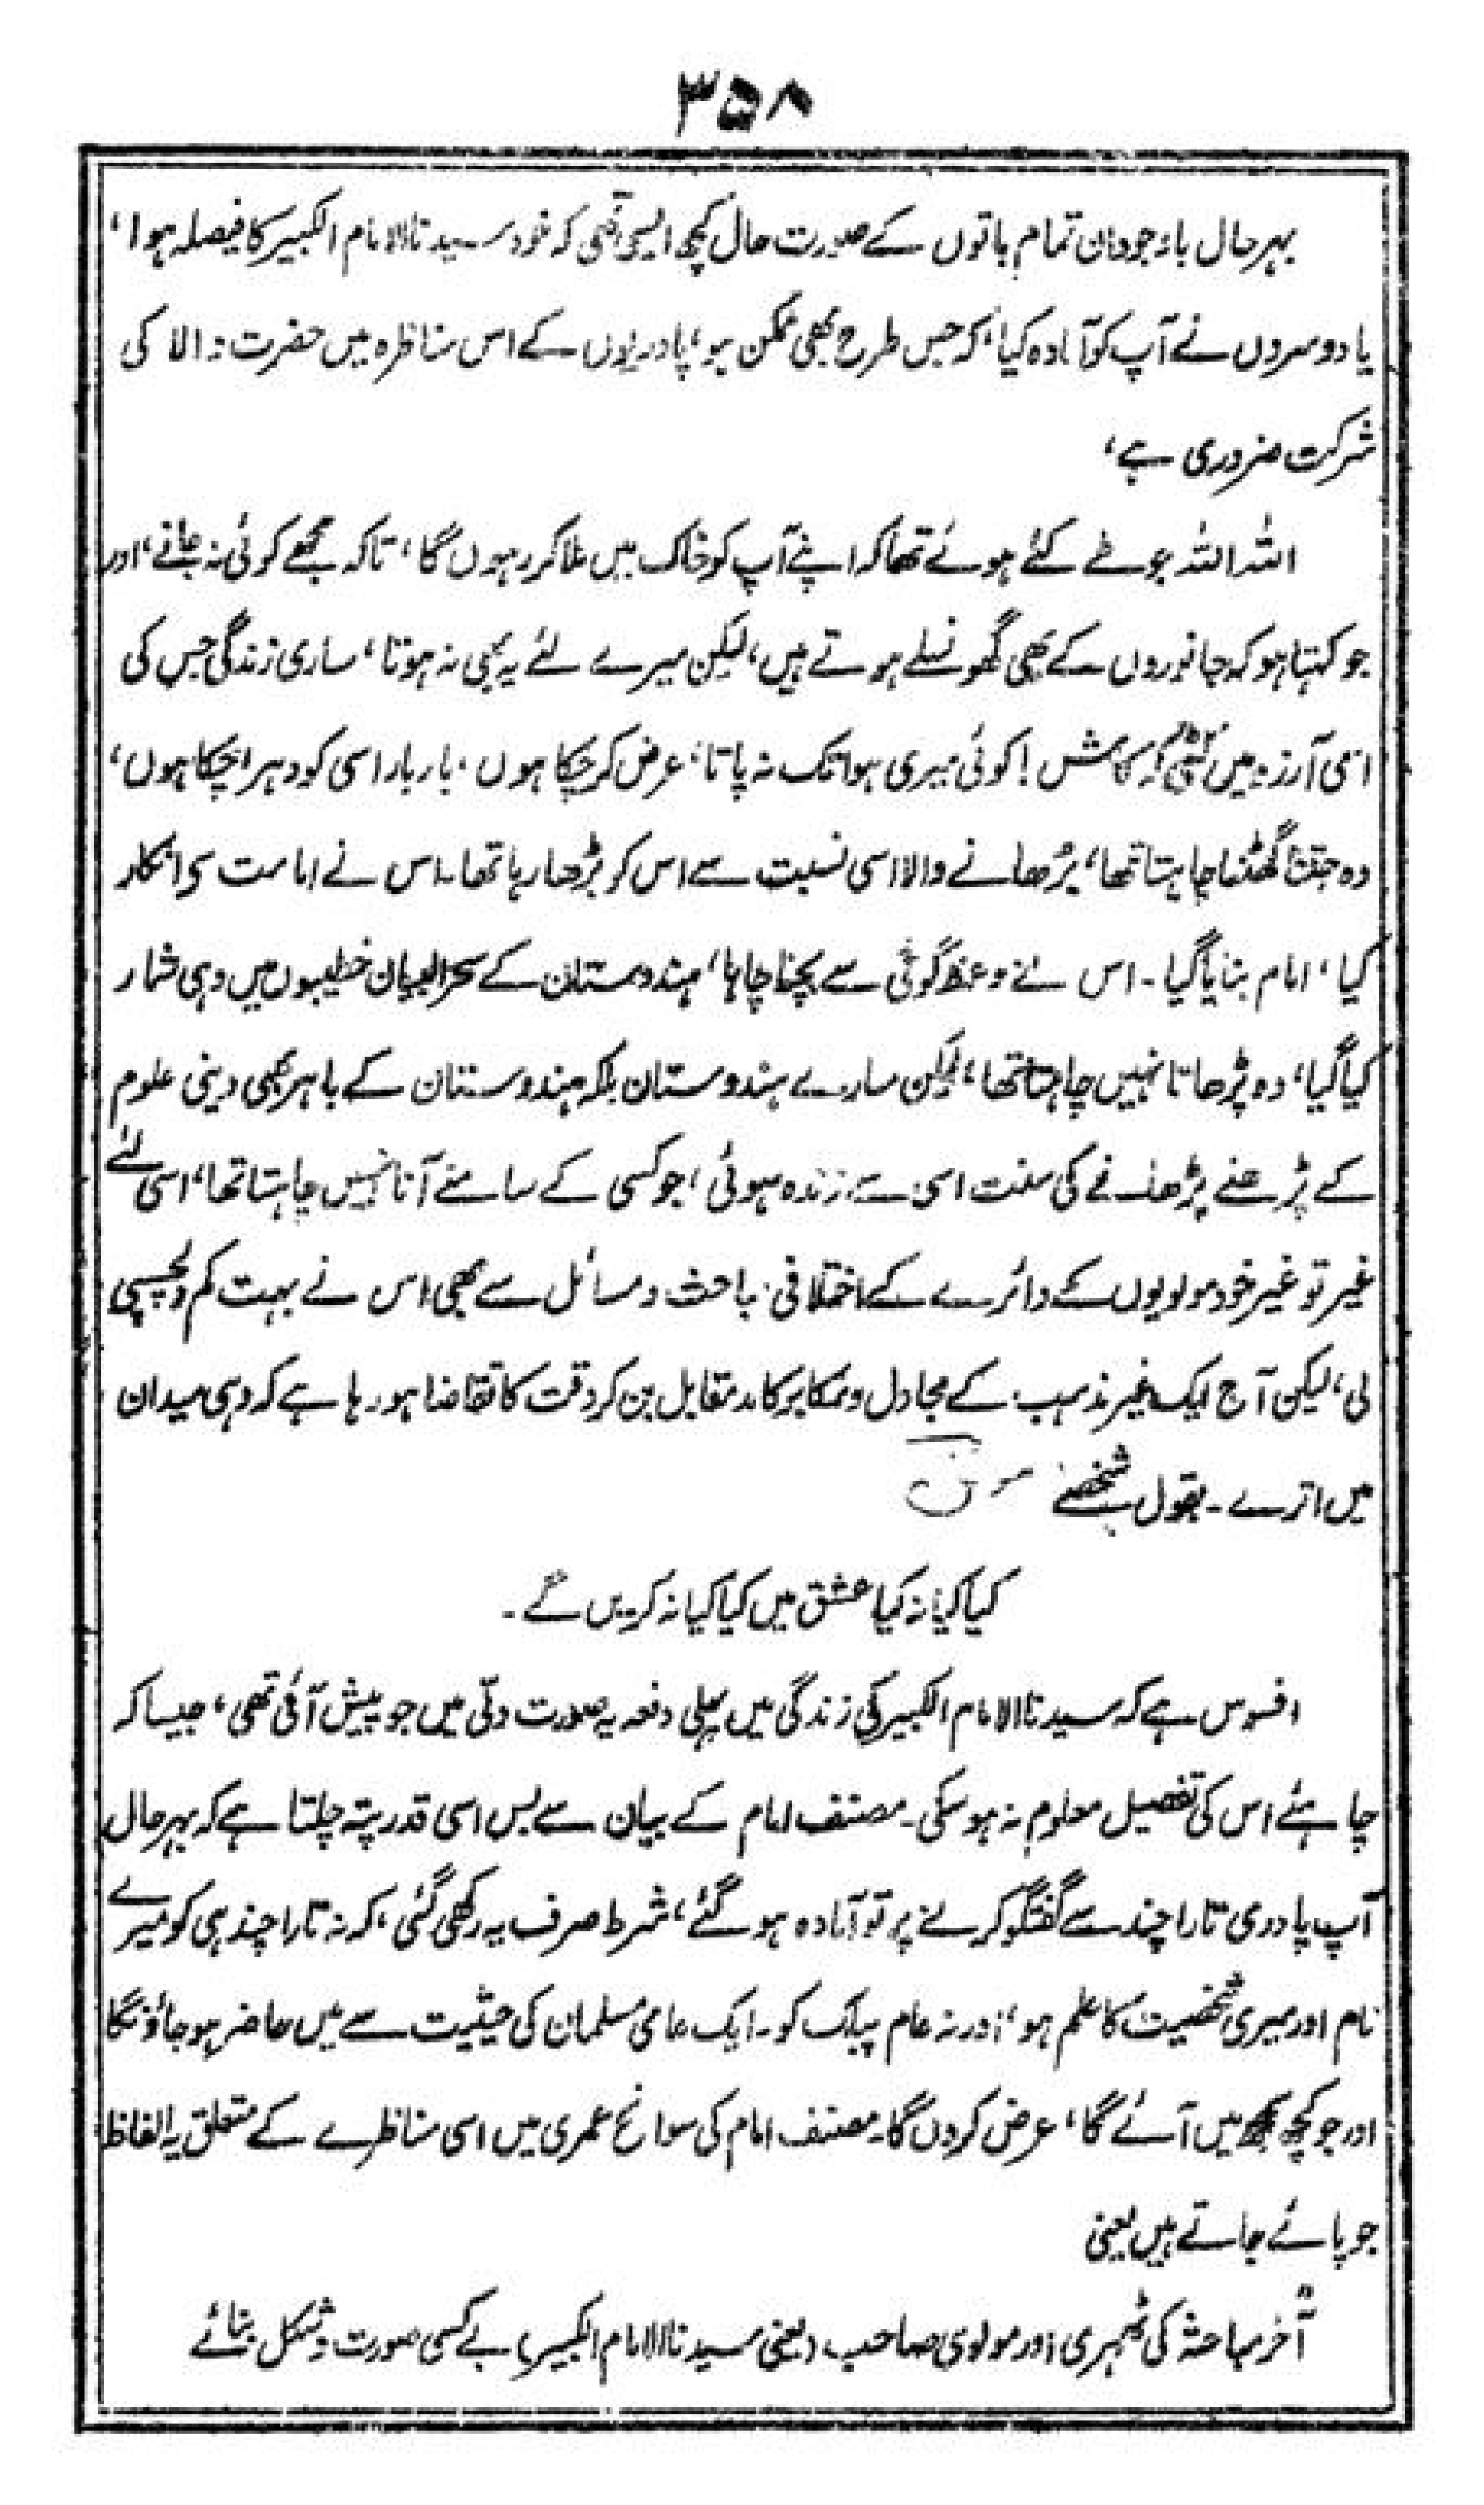 ۳۵۸
بہرحال باوجودان تمام باتوں کے صورت حال کچھ ایسی تھی کہ خود سیدنا الامام الکبیر کا فیصلہ ہوا،
یا دوسروں نے آپ کو آمادہ کیا، کہ جس طرح بھی ممکن ہو، پادریوں کے اس مناظرہ میں حضرت والا کی
شرکت ضروری ہے،
اللہ اللہ جو طے کئے ہوئے تھا کہ اپنے آپ کو خاک میں ملا کر رہوں گا، تاکہ مجھے کوئی نہ جانے، اور
جو کہتا ہو کہ جانوروں کے بھی گھونسلے ہوتے ہیں، لیکن میرے لئے یہ بھی نہ ہوتا، ساری زندگی جس کی
اسی آرزو میں کٹی کہ کاش! کوئی میری ہوا تک نہ پاتا، عرض کر چکا ہوں، بار بار اسی کو دہرا چکا ہوں،
وہ جتنا گھٹنا چاہتا تھا، بڑھانے والا اسی نسبت سے اس کو بڑھا رہا تھا۔ اس نے امامت سی انکار
کیا، امام بنایا گیا۔ اس نے وعظ گوئی سے بچنا چاہا، ہندوستان کے سحرالبیان خطیبوں میں وہی شمار
کیا گیا، وہ پڑھانا نہیں چاہتا تھا، لیکن سارے ہندوستان بلکہ ہندوستان کے باہر بھی دینی علوم
کے پڑھنے پڑھانے کی سنت اسی سے زندہ ہوئی، جو کسی کے سامنے آنا نہیں چاہتا تھا، اسی لئے
غیر تو غیر خود مولویوں کے دائرے کے اختلافی مباحث و مسائل سے بھی اس نے بہت کم دلچسپی
لی، لیکن آج ایک غیر مذہب کے مجادل و مکابر کا مدمقابل بن کر وقت کا تقاضا ہو رہا ہے کہ وہی میدان
میں اترے۔ بقول شخصے
کیا کیا نہ کیا عشق میں کیا کیا نہ کریں گے۔
افسوس ہے کہ سیدنا الامام الکبیر کی زندگی میں پہلی دفعہ یہ صورت دلّی میں جو پیش آئی تھی، جیسا کہ
چاہئے اس کی تفصیل معلوم نہ ہوسکی۔ مصنف امام کے بیان سے بس اسی قدر پتہ چلتا ہے کہ بہرحال
آپ پادری تارا چند سے گفتگو کرنے پر تو آمادہ ہوگئے، شرط صرف یہ رکھی گئی، کہ نہ تارا چند ہی کو میرے
نام اور میری شخصیت کا علم ہو، اور نہ عام پبلک کو۔ ایک عامی مسلمان کی حیثیت سے میں حاضر ہو جاؤنگا
اور جو کچھ سمجھ میں آئے گا، عرض کردوں گا۔ مصنف امام کی سوانح عمری میں اسی مناظرے کے متعلق یہ الفاظ
جو پائے جاتے ہیں یعنی
آخر مباحثہ کی ٹھہری اور مولوی صاحب (یعنی سیدنا الامام الکبیر) بے کسی صورت و شکل بنائے